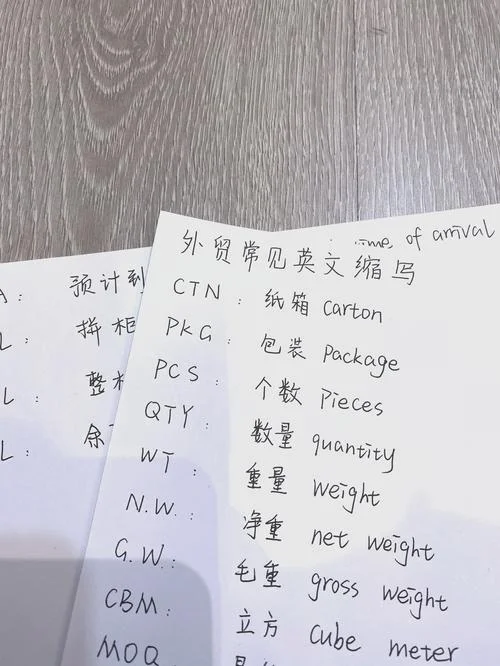 外贸常见英文缩写
CTN: 纸箱 carton
PKG: 包装 package
PCS: 个数 pieces
QTY: 数量 quantity
WT: 重量 weight
N.W.: 净重 net weight
G.W.: 毛重 gross weight
CBM: 立方 cube meter
MOQ
of arrival
A: 预计到
L: 拼柜
L: 整
L: 余